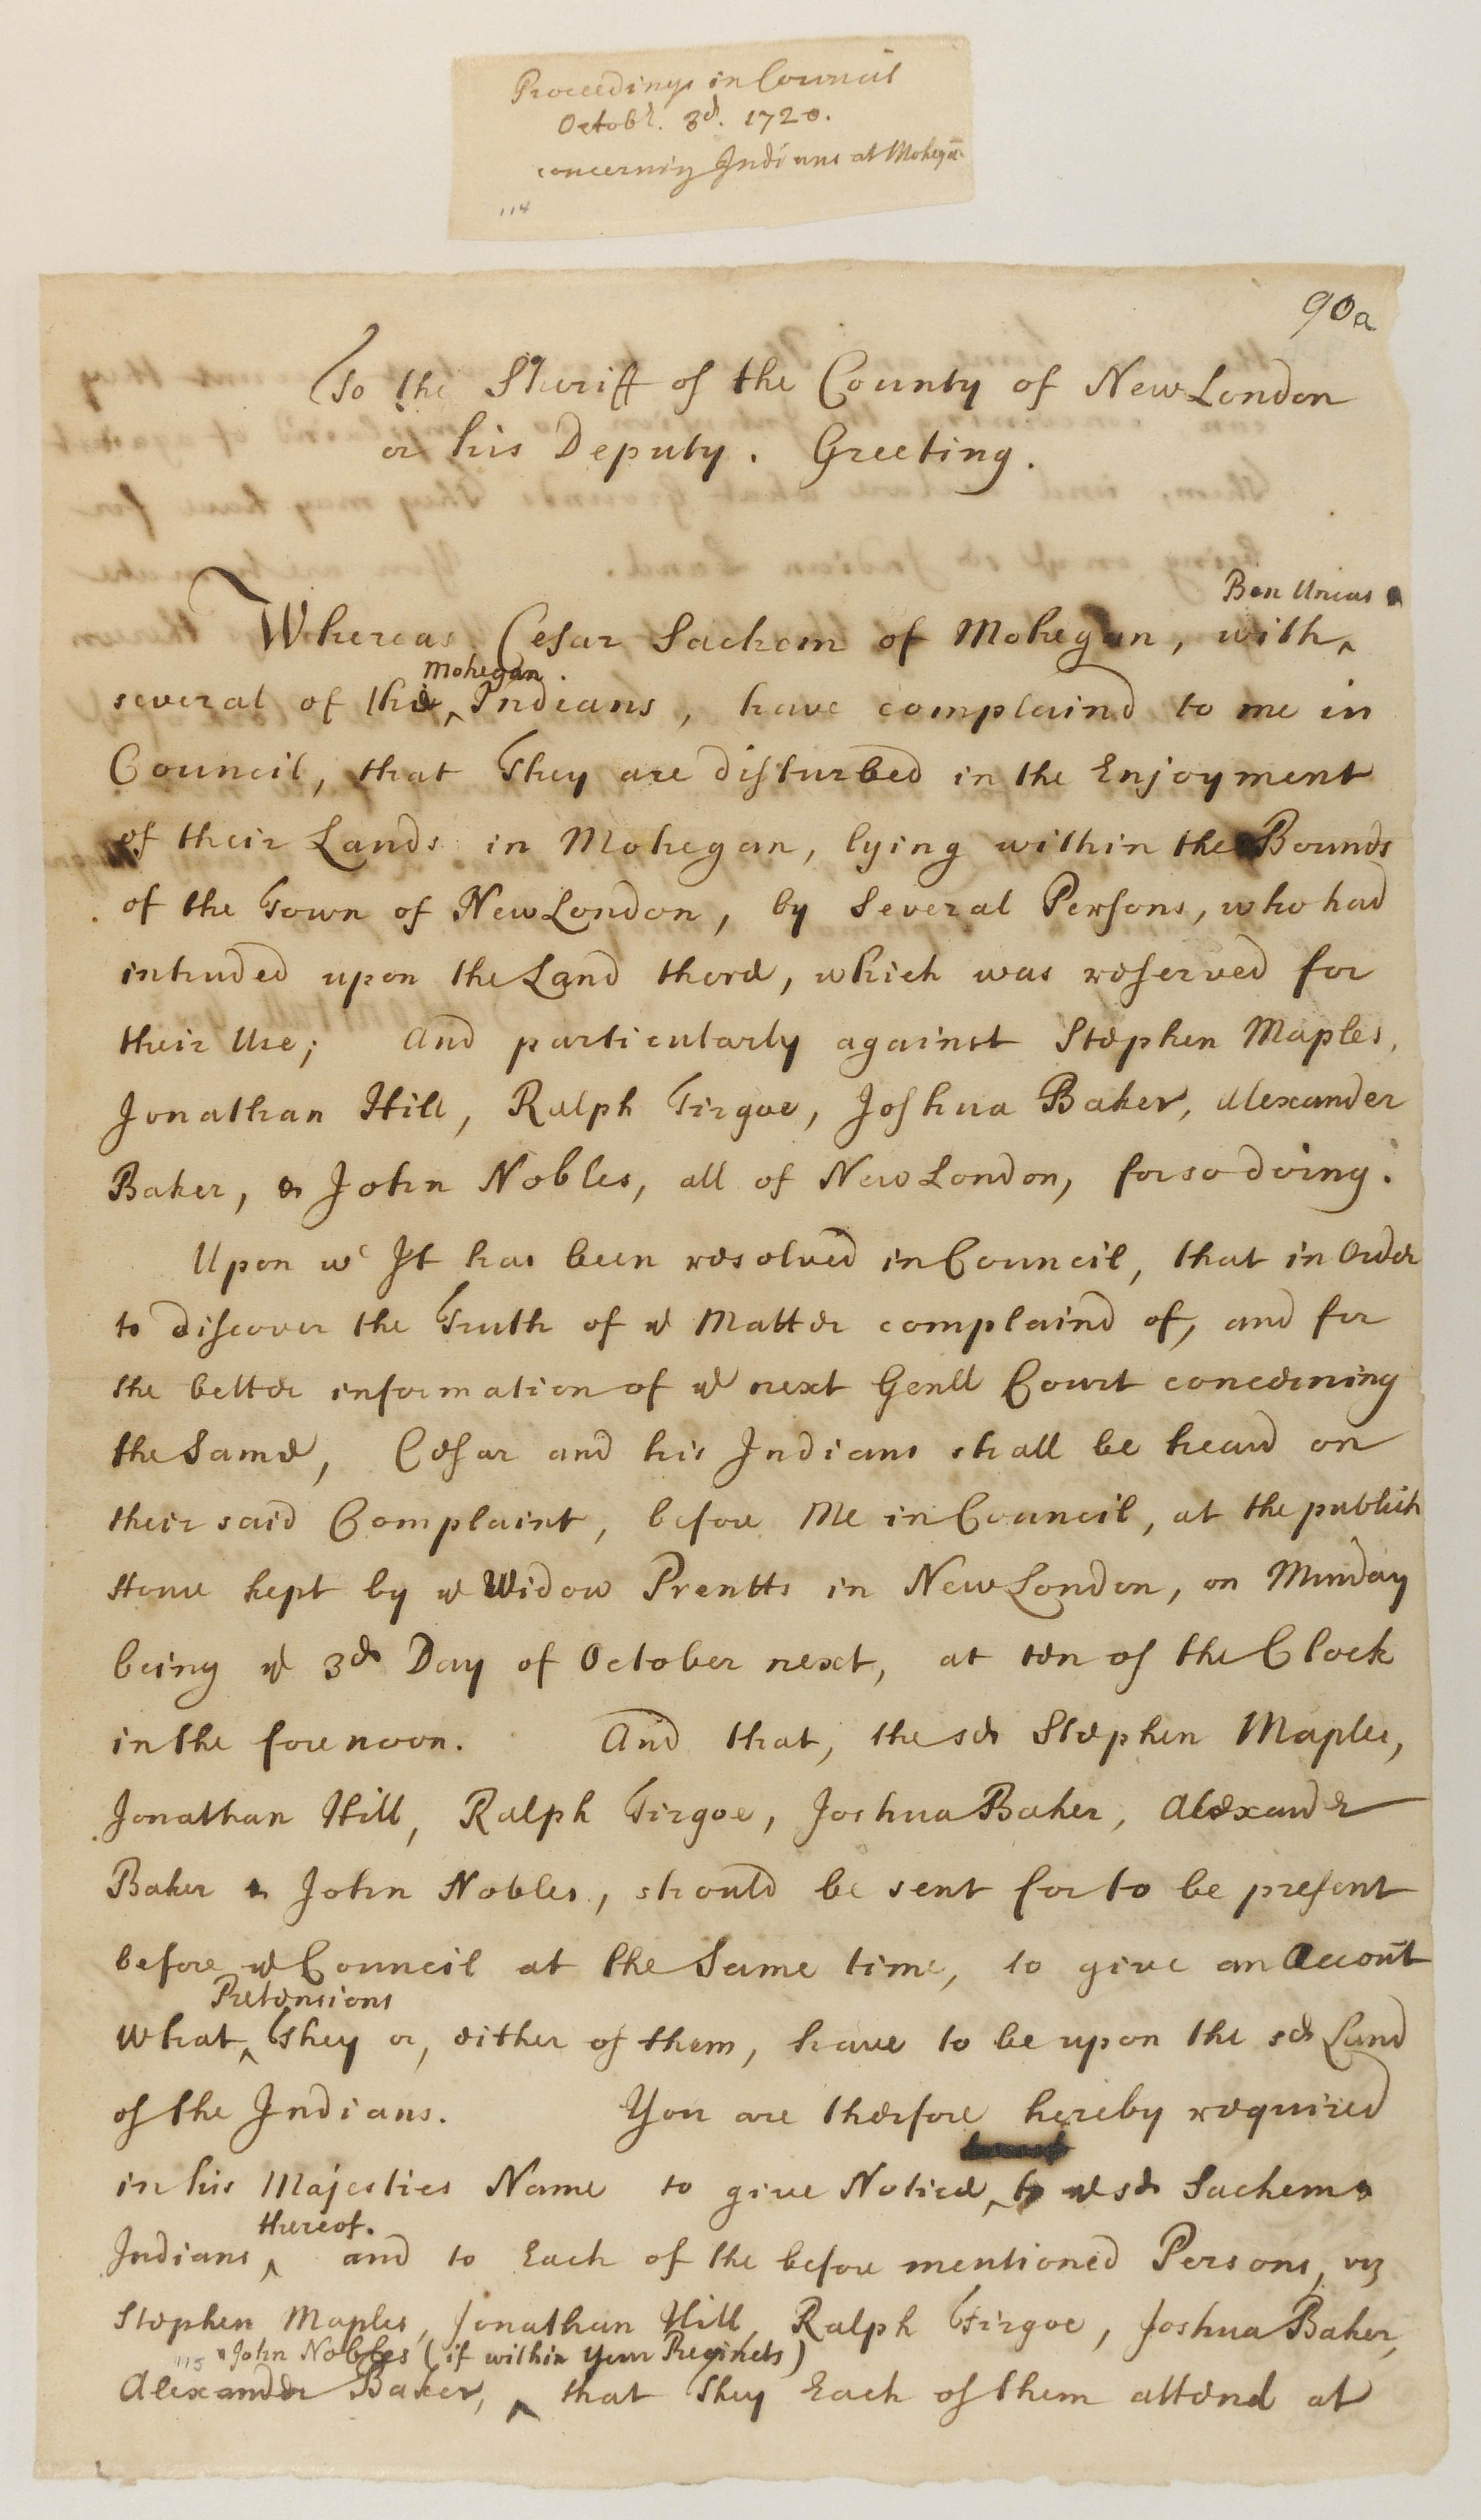 Proceedings in Council
Octobr. 3d. 1720.
concerning Indians at Mohegan
114
90a
To the Sheriff of the County of New London
or his Deputy. Greeting.
Ben Uncas &
Whereas Cesar Sachem of Mohegan, with ^
Mohegan
several of the ^ Indians, have complaind to me in
Council, that They are disturbed in the Enjoyment
of their Lands in Mohegan, lying within the Bounds
of the Town of New London, by Several Persons, who had
intruded upon the Land there, which was reserved for
their Use; And particularly against Stephen Maples,
Jonathan Hill, Ralph Firgoe, Joshua Baker, Alexander
Baker, & John Nobles, all of New London, for so doing.
Upon wc It has been resolved in Council, that in Order
to discover the Truth of ye Matter complaind of, and for
the better information of ye next Genll Court concerning
the Same, Cesar and his Indians shall be heard on
their said Complaint, before Me in Council, at the publick
House kept by ye Widow Prentts in New London, on Munday
being ye 3d Day of October next, at ten of the Clock
in the forenoon. And that, the sd Stephen Maples,
Jonathan Hill, Ralph Firgoe, Joshua Baker, Alexander
Baker & John Nobles, should be sent for to be present
before ye Council at the Same time, to give an Account
Pretensions
What ^ They or, either of them, have to be upon the sd Land
of the Indians. You are therfore hereby required
in his Majesties Name to give Notice ^ to ye sd Sachem &
thereof.
Indians ^ and to Each of the before mentioned Persons, viz
Stephen Maples, Jonathan Hill, Ralph Firgoe, Joshua Baker,
115 & John Nobles (if within Your Precincts)
Alexander Baker, ^ that They Each of them attend at